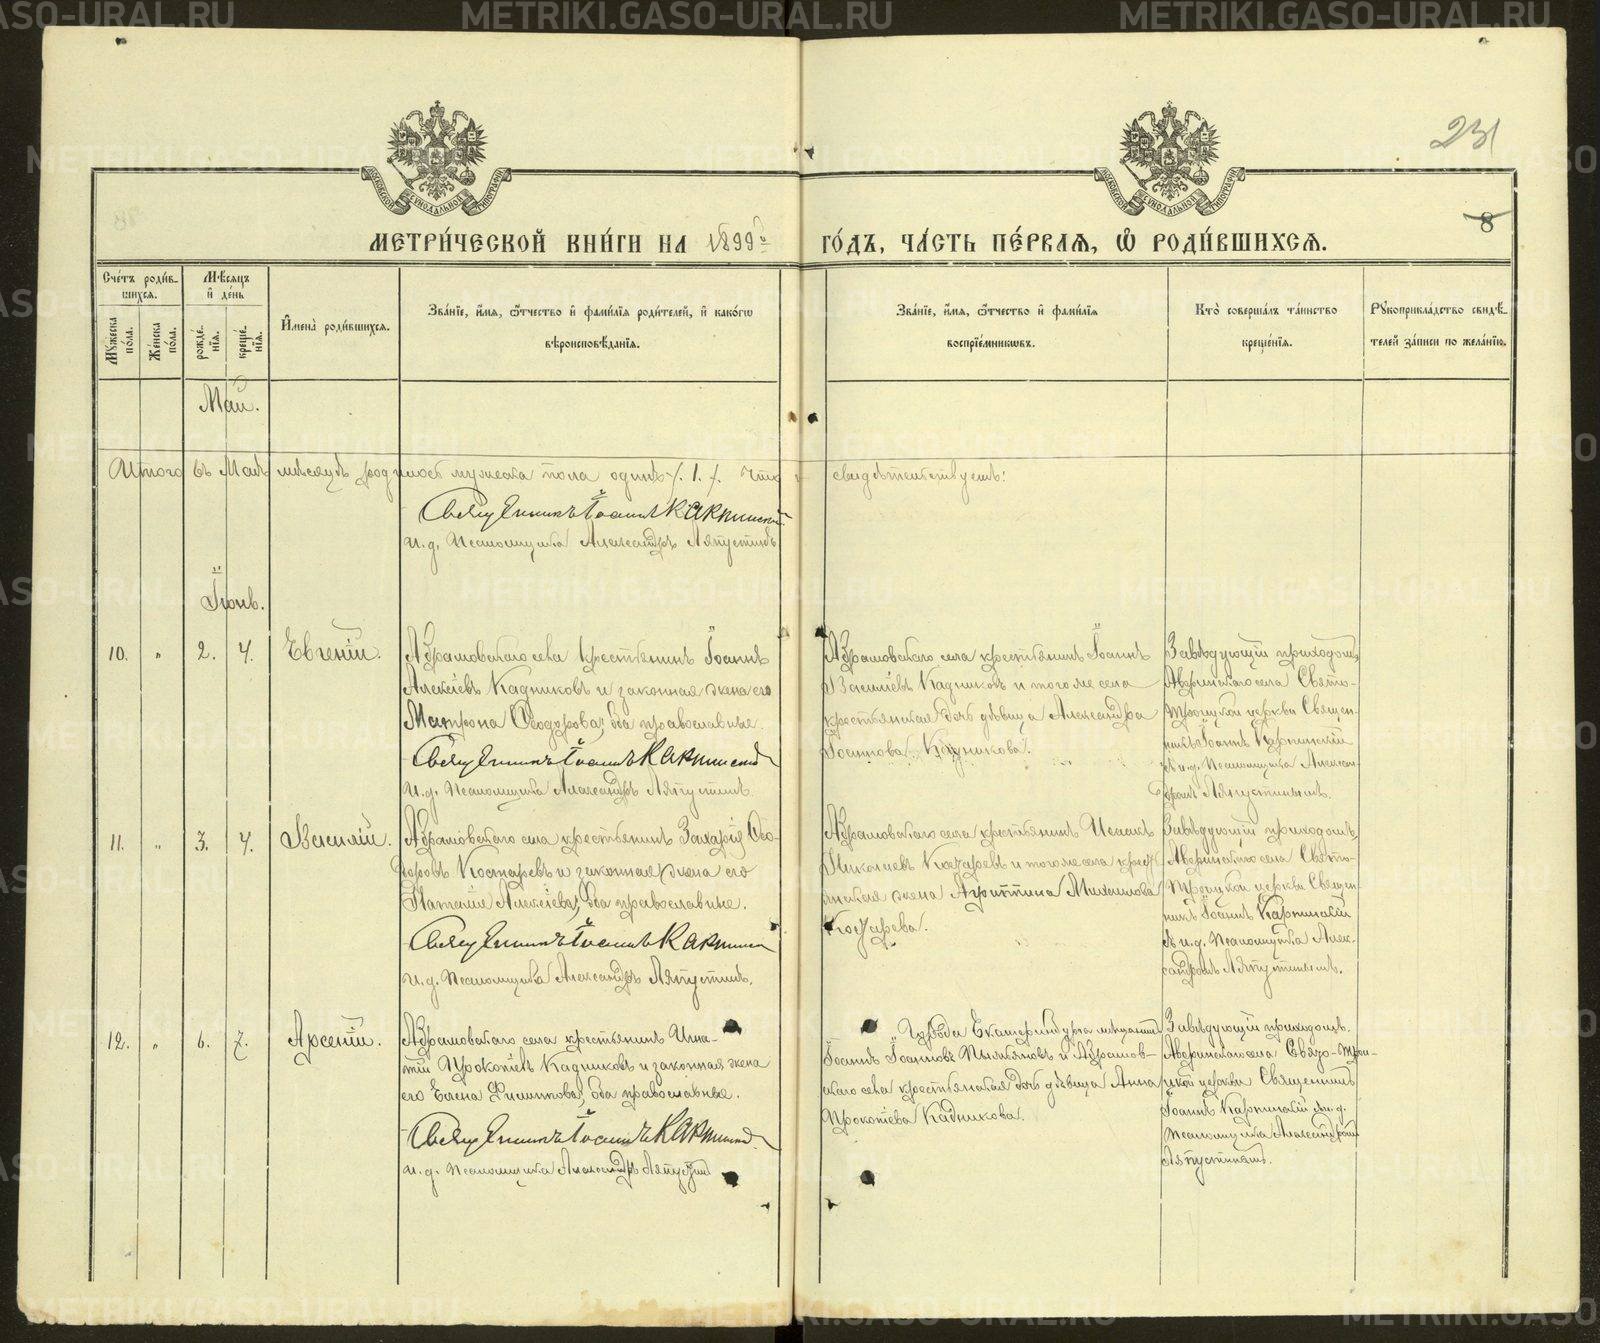 METRIKI.GASO-URAL.RU
231
8
МОСКОВСКОЙ СУНОДАЛЬНОЙ ТИПОГРАФІИ
МОСКОВСКОЙ СУНОДАЛЬНОЙ ТИПОГРАФІИ
МЕТРИ́ЧЕСКОЙ КНИ́ГИ НА 1899й ГО́ДЪ, ЧА́СТЬ ПЕ́РВАЯ, Ѡ РОДИ́ВШИХСЯ.
Сче́тъ роди́в-
шихся.
Мѣсяцъ
и де́нь
Мꙋ́жеска
по́ла.
Же́нска
по́ла.
рожде́-
нія.
креще́-
нія.
Имена̀ роди́вшихся.
Зва́ніе, и́мя, ѻ́тчество и фами́лія роди́телей, и како́гѡ
вѣроисповѣ́данія.
Зва́ніе, и́мя, ѻ́тчество и фами́лія
воспріе́мникѡвъ.
Кто̀ соверша́лъ та́инство
креще́нія.
Рꙋкоприкла́дство свидѣ́-
телей за́писи по жела́нію.
Май.
Итого въ Маѣ мѣсяцѣ родилось мужеска пола одинъ /. 1. /. Что и свидѣтельствуетъ:
Священникъ Іоаннъ Карпинскій
и. д. Псаломщика Александръ Ляпустинъ
Іюнь.
10. „ 2. 4. Евгеній.
Абрамовскаго села крестьянинъ Іоаннъ
Алексіевъ Кадниковъ и законная жена его
Матрона Ѳеодорова; оба православные.
Священникъ Іоаннъ Карпинскій
и. д. Псаломщика Александръ Ляпустинъ.
Абрамовскаго села крестьянинъ Іоаннъ
Васильевъ Кадниковъ и того же села
крестьянская дочь дѣвица Александра
Іоаннова Кадникова.
Завѣдующій приходомъ
Аверинскаго села Свято-
Троицкой церкви Священ-
никъ Іоаннъ Карпинскій
и и. д. Псаломщика Алексан-
дромъ Ляпустинымъ.
11. „ 3. 4. Василій.
Абрамовскаго села крестьянинъ Захарія Ѳео-
доровъ Костаревъ и законная жена его
Наталія Алексіева; оба православные.
Священникъ Іоаннъ Карпинскій
и. д. Псаломщика Александръ Ляпустинъ.
Абрамовскаго села крестьянинъ Исаакъ
Николаевъ и того же села крестьянская жена Агриппина Михаилова
Завѣдующій приходомъ,
Аверинскаго села Свято-
Троицкой церкви Священ-
никъ Іоаннъ Карпинскій
и и. д. Псаломщика Алек-
сандромъ Ляпустинымъ.
12. „ 6. 7. Арсеній.
Абрамовскаго села крестьянинъ Игна-
тій Прокопіевъ Кадниковъ и законная жена
его Елена Филиппова; оба православные.
Священникъ Іоаннъ Карпинскій
и. д. Псаломщика Александръ Ляпустинъ
Города Екатеринбурга мѣщанинъ
Іоаннъ Іоанновъ и Абрамов-
скаго села крестьянская дочь дѣвица Анна
Прокопіева Кадникова.
Завѣдующій приходомъ.
Аверинскаго села Свято-Трои-
цкой церкви Священникъ
Іоаннъ Карпинскій и и. д.
Псаломщика Александромъ
Ляпустинымъ.